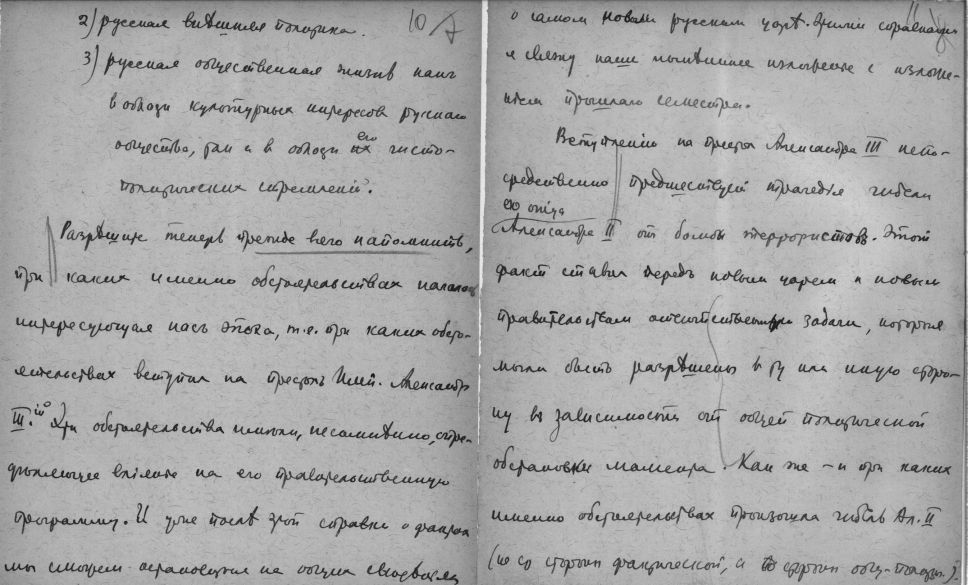 10
2) русская внѣшняя политика.
3) русская общественная жизнь какъ
в области культурных интересов русскаго
общества, так и в области его чисто-
политических стремленій.
Разрѣшите теперь прежде всего напомнить,
при каких именно обстоятельствах началась
интересующая насъ эпоха, т.е. при каких обсто-
ятельствах вступил на престолъ Имп. Александр
III. Эти обстоятельства имѣли, несомнѣнно, опре-
дѣляющее вліяніе на его правительственную
программу. И уже послѣ этой справки о фактах
мы сможем остановиться на общих свѣдѣніях
11
о самом новом русском царѣ. Этими справками
я свяжу наше нынѣшнее изложеніе с изложе-
ніем прошлаго семестра.
Вступленію на престол Александра III непо-
средственно предшествует трагедія гибели
его отца
Александра II от бомбы террористовъ. Этот
факт ставил передъ новым царем и новым
правительством задачи, которыя
могли быть разрѣшены в ту или иную сторо-
ну въ зависимости от общей политической
обстановки момента. Как же - и при каких
именно обстоятельствах произошла гибель Ал. II
(не со стороны фактической, а со стороны общ.-полит.)